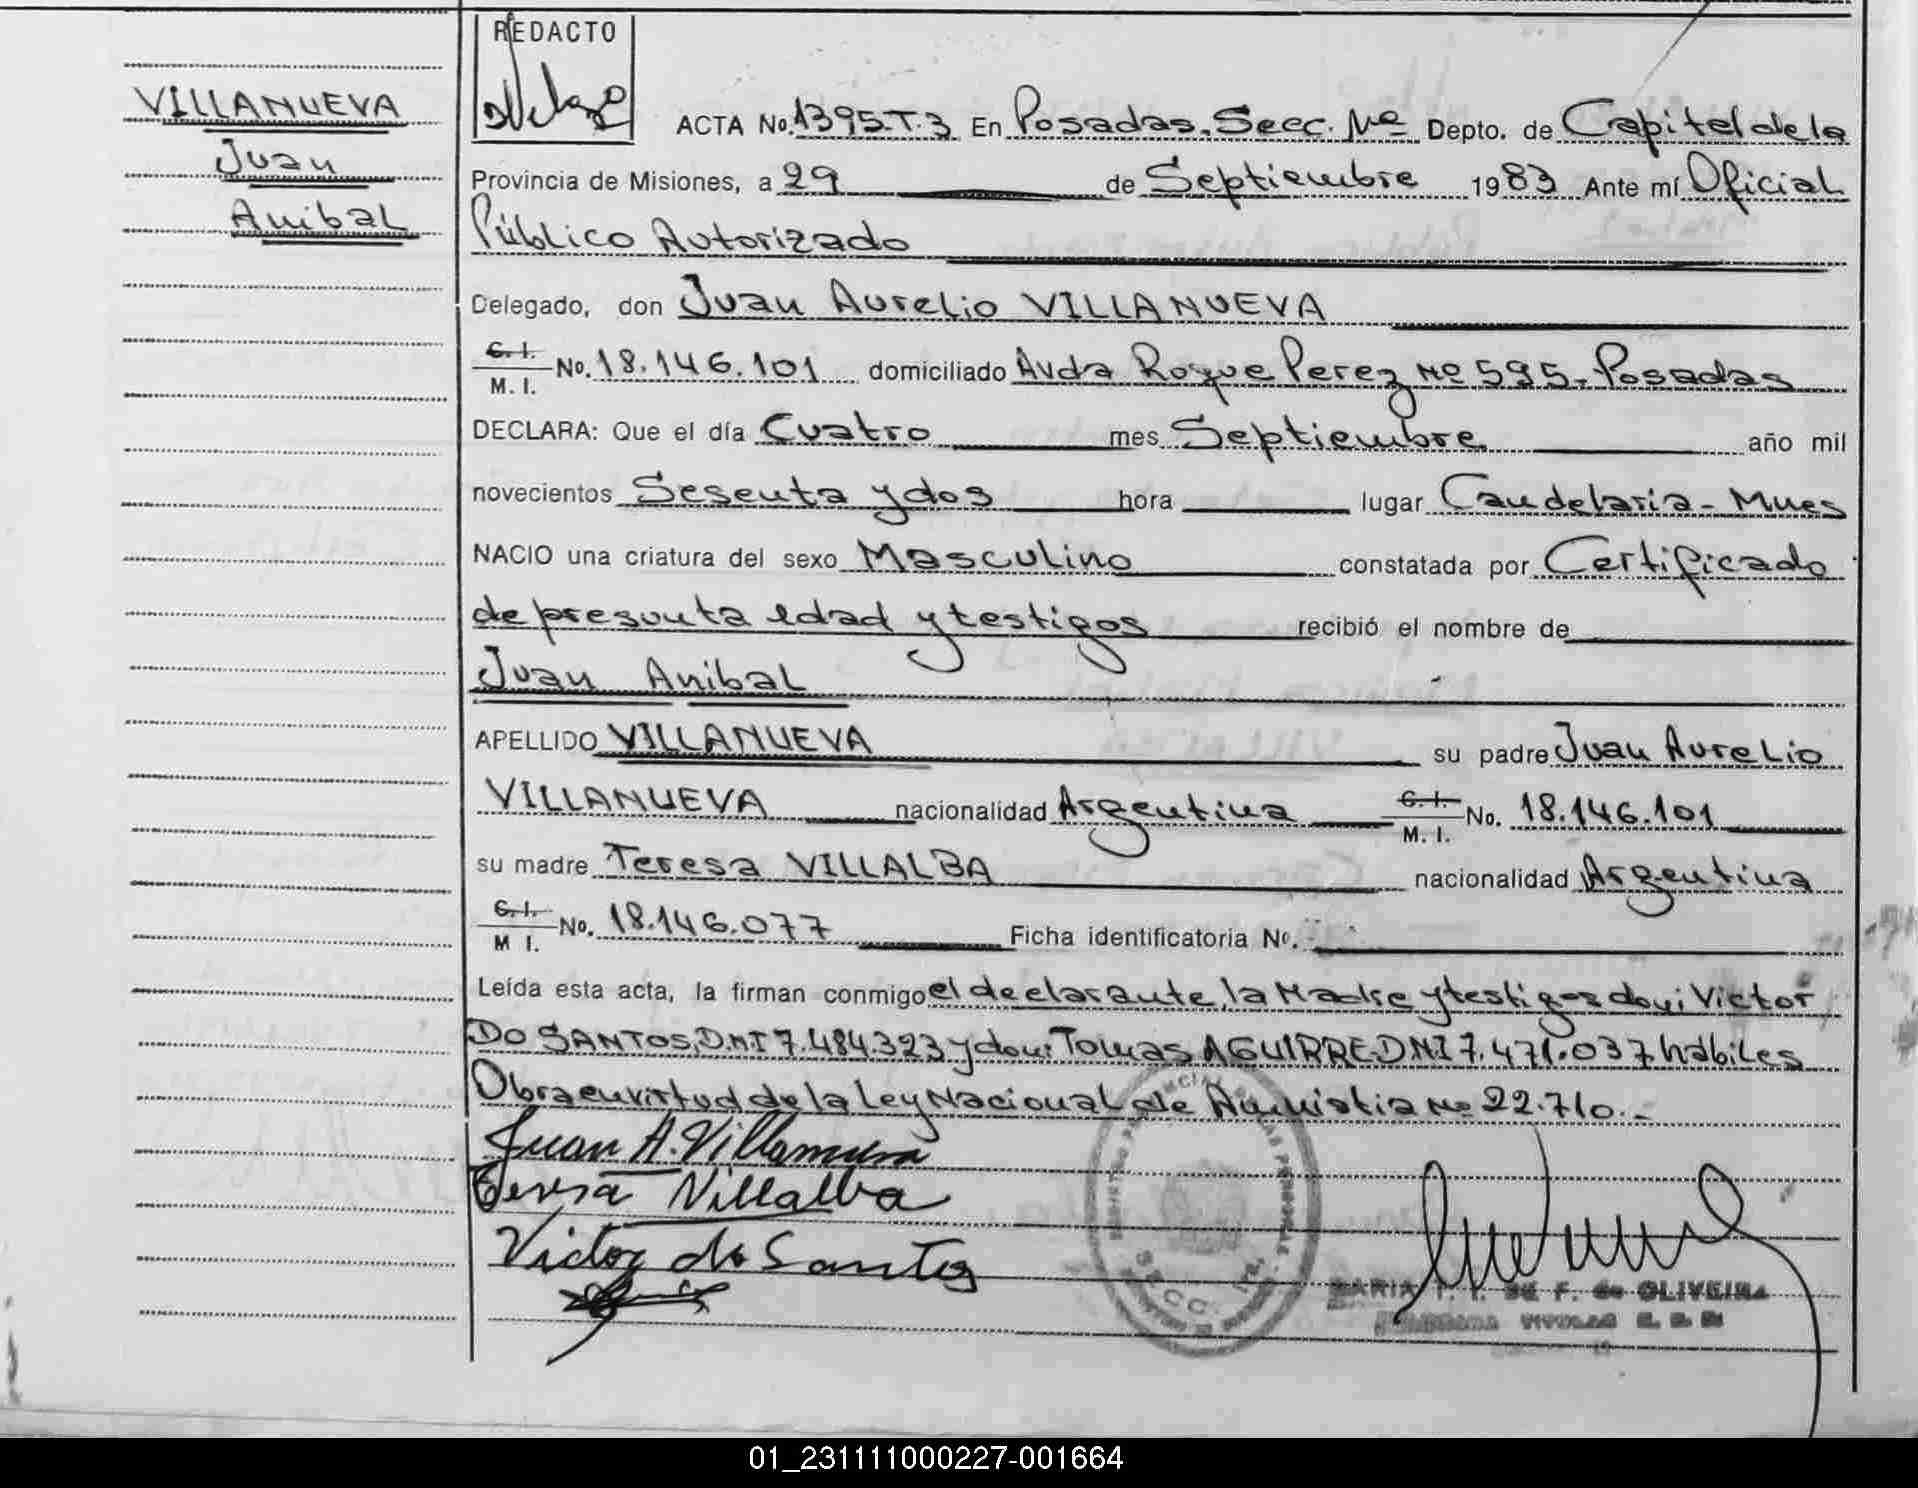 REDACTO
VILLANUEVA
Juan
Anibal
ACTA No. 1395.T.3 En Posadas. Secc. Depto. de Capital de la
Provincia de Misiones, a 29 de Septiembre 1983 Ante mí Oficial
Público Autorizado
Delegado, don Juan Aurelio VILLANUEVA
C. I. M. I. No. 18.146.101 domiciliado Avda Roque Perez Nº 595. Posadas
DECLARA: Que el día Cuatro mes Septiembre año mil
novecientos Sesenta y dos hora lugar Candelaria - Mnes
NACIO una criatura del sexo Masculino constatada por Certificado
de presunta edad y testigos recibió el nombre de
Juan Anibal
APELLIDO VILLANUEVA su padre Juan Aurelio
VILLANUEVA nacionalidad Argentina C. I. M. I. No. 18.146.101
su madre Teresa VILLALBA nacionalidad Argentina
C. I. M I. No. 18.146.077 Ficha identificatoria No.
Leída esta acta, la firman conmigo el declarante, la Madre y testigos don: Victor
DO SANTOS, D.N.I 7.484.323 y don: Tomas AGUIRRE DNI 7.471.037 hábiles
Obra en virtud de la Ley Nacional de Amnistia Nº 22.710.-
Juan A. Villanueva
Teresa Villalba
Victor do Santos
SECC.
MARIA DE F. de OLIVEIRA
TITULAR
01_231111000227-001664